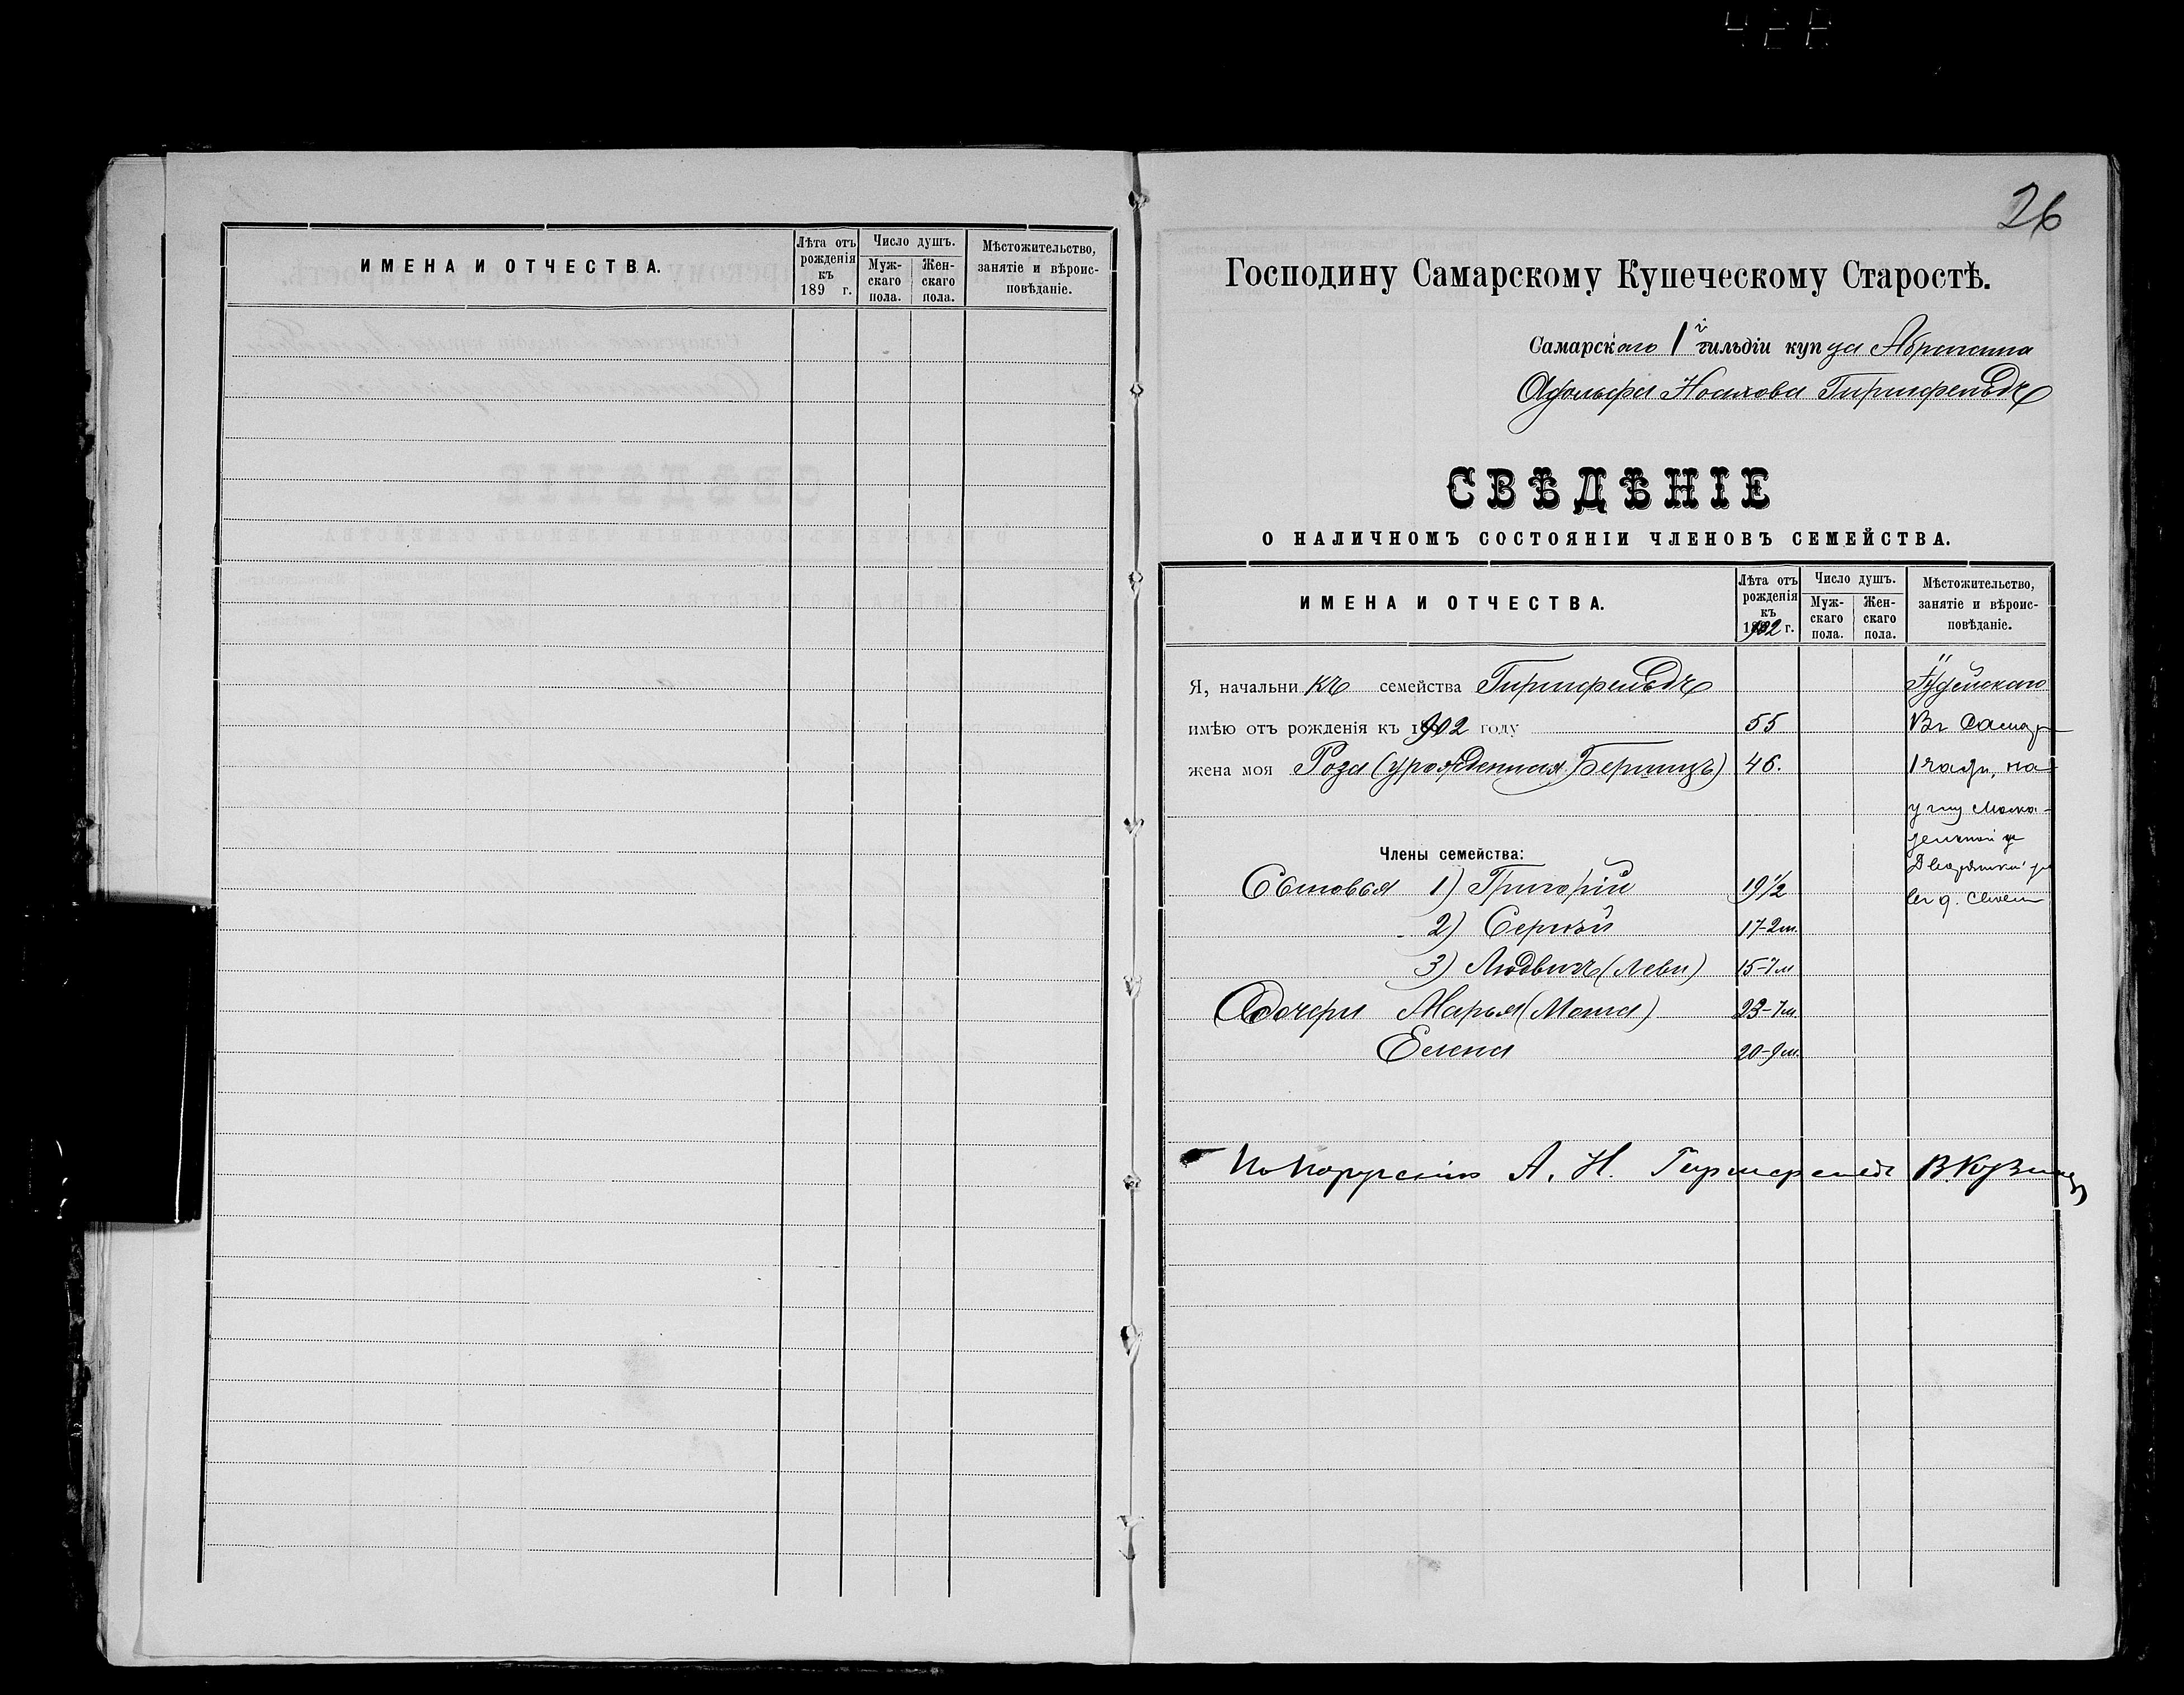 ИМЕНА И ОТЧЕСТВА.
Лѣта отъ рожденія къ 189 г.
Число душъ.
Мужскаго пола.
Женскаго пола.
Мѣстожительство, занятіе и вѣроисповѣданіе.
26
Господину Самарскому Купеческому Старостѣ.
Самарскаго 1й гильдіи купца Абрама
Адольфа Ноахова Гиршфельдъ
СВѢДѢНІЕ
О НАЛИЧНОМЪ СОСТОЯНІИ ЧЛЕНОВЪ СЕМЕЙСТВА.
ИМЕНА И ОТЧЕСТВА.
Лѣта отъ рожденія къ 1902 г.
Число душъ.
Мужскаго пола.
Женскаго пола.
Мѣстожительство, занятіе и вѣроисповѣданіе.
Я, начальникъ семейства Гиршфельдъ Іудейскаго
имѣю отъ рожденія къ 1902 году 55 Въ Самар
жена моя Роза (урожденная 46. 1 части, на
углу Моска-
тельной и
Члены семейства: Дворянской ул
Сыновья 1) Григорій 19 1/2 въ д.
2) Сергѣй 17-2 м.
3) Людвигъ (Леви) 15-7 м
Дочери Марья (Маша) 23-7 м.
Елена 20-9 м.
По порученію А. Н. Гиршфельдъ